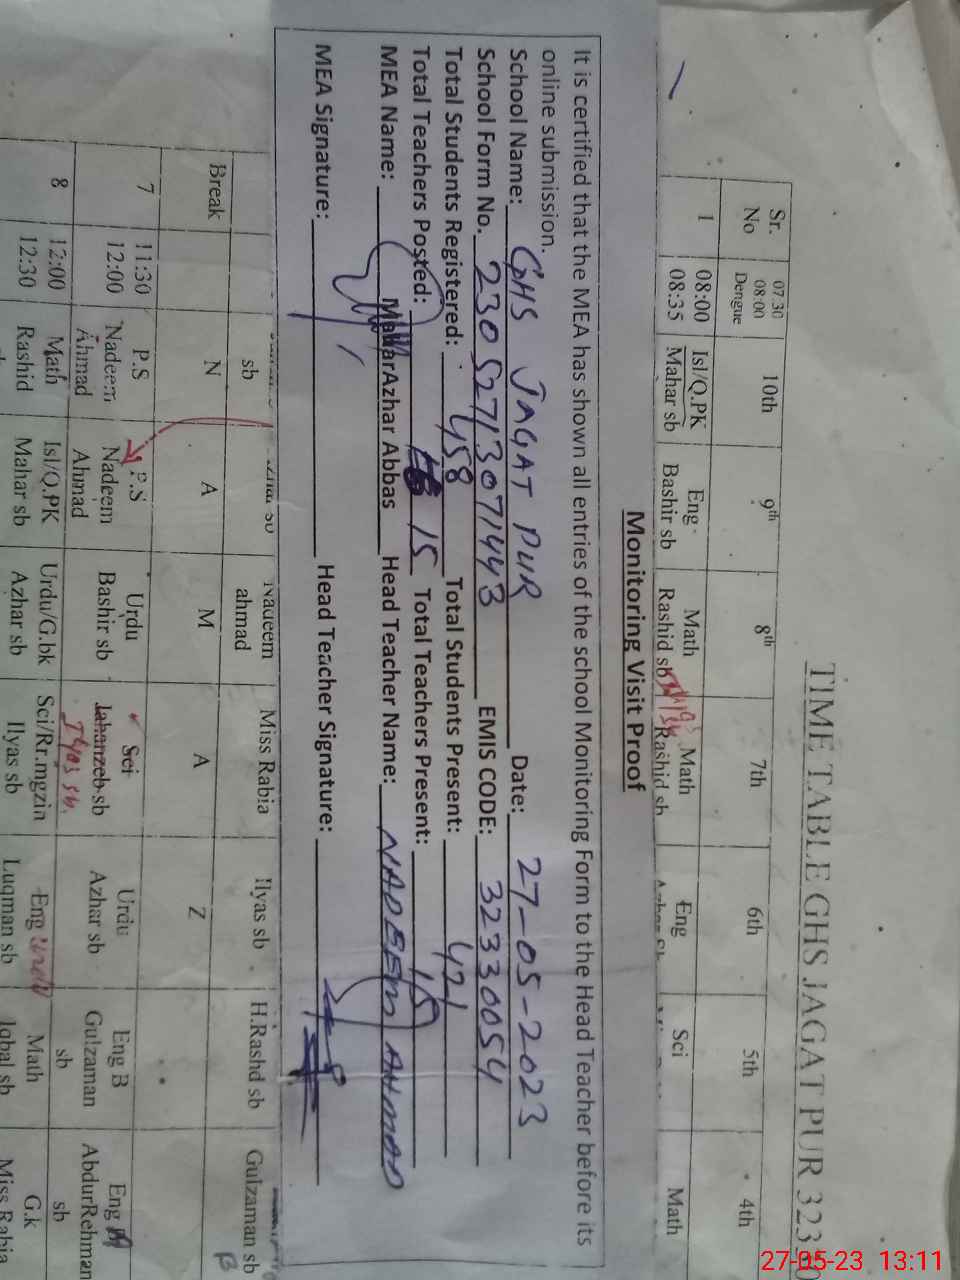 TIME TABLE GHS JAGAT PUR
Sr. No 07.30 08:00 Dengue 10th 9th 8th 7th 6th 5th 4th
1 08:00 08:35 Isl/Q.PK Mahar sb Eng Bashir sb Math Rashid sb Math Rashid sb Eng Sci Math
Monitoring Visit Proof
It is certified that the MEA has shown all entries of the school Monitoring Form to the Head Teacher before its
online submission.
School Name: GHS JAGAT PUR Date: 27-05-2023
School Form No. 23052713071443 EMIS CODE: 32330054
Total Students Registered: 458 Total Students Present: 421
Total Teachers Posted: 15 Total Teachers Present: 15
MEA Name: Azhar Abbas Head Teacher Name: NADEEM AHMAD
MEA Signature: Head Teacher Signature:
sb Nadeem ahmad Miss Rabia Ilyas sb H.Rashd sb Gulzaman sb
B
Break N A M A Z
7 11:30 12:00 P.S Nadeem Ahmad P.S Nadeem Ahmad Urdu Bashir sb Sci Jahanzeb sb Ilyas sb. Urdu Azhar sb Eng B Gulzaman sb Eng AbdurRehman sb
8 12:00 12:30 Math Rashid Isl/Q.PK Mahar sb Urdu/G.bk Azhar sb Sci/Rr.mgzin Ilyas sb Eng Luqman sb Math Iqbal sb G.k Miss Rabia
27-05-23 13:11